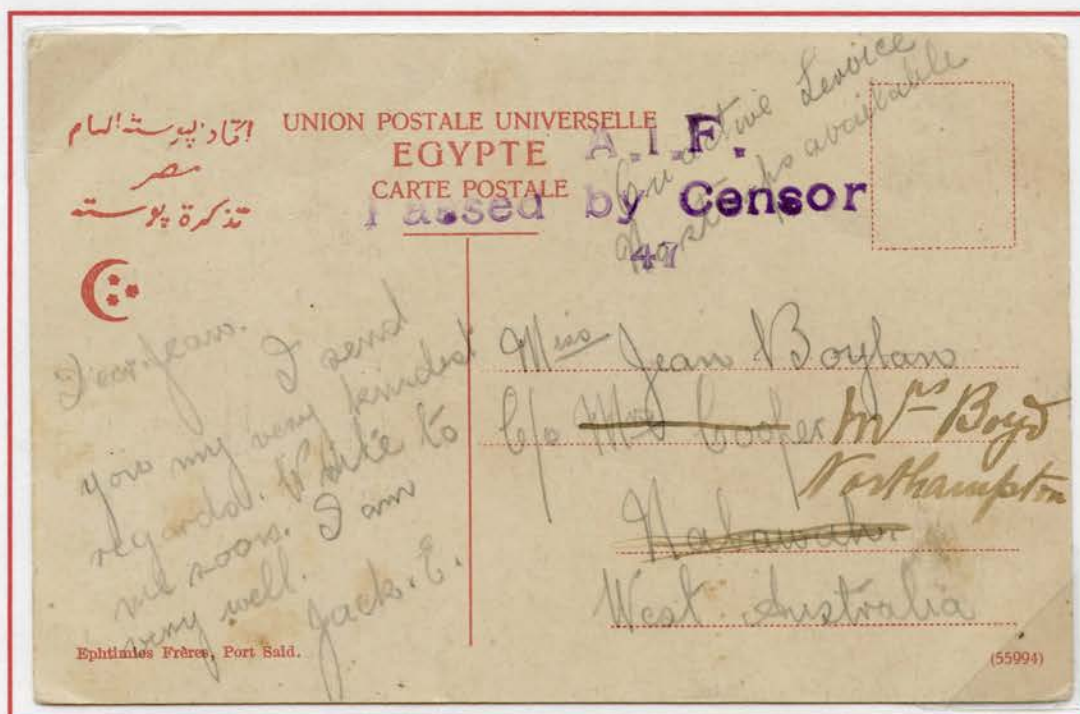 اتحاد پوسته العام
مصر
تذكرة پوسته
UNION POSTALE UNIVERSELLE
EGYPTE
CARTE POSTALE
A.I.F.
Passed by Censor
47
On active Service
No stamps available
Dear Jean.
I send
you my very kindest
regards. Write to
me soon. I am
very well.
Jack. E.
Miss Jean Boylan
C/o Mrs Cooper Mrs Boyd
Northampton
West Australia
Ephtimios Frères, Port Said.
(55994)